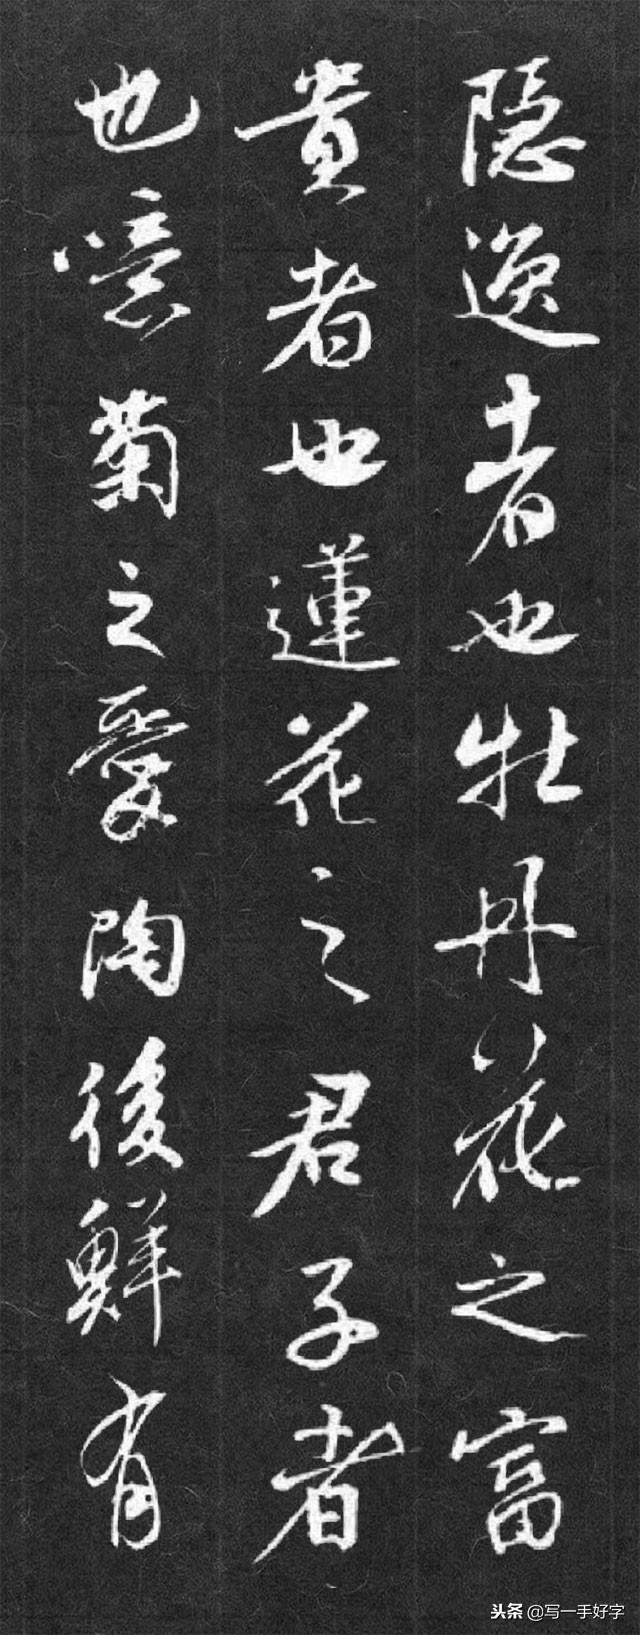 隐逸者也牡丹花之富
貴者也蓮花之君子者
也噫菊之愛陶後鮮有
头条 @写一手好字